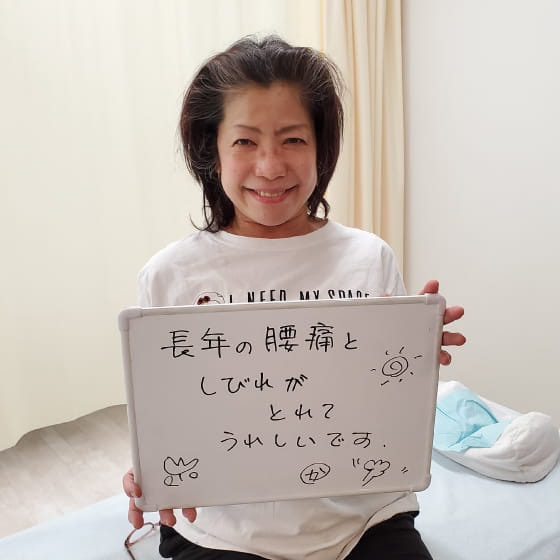 I NEED MY SPACE
長年の腰痛と
しびれが
とれて
うれしいです.
か